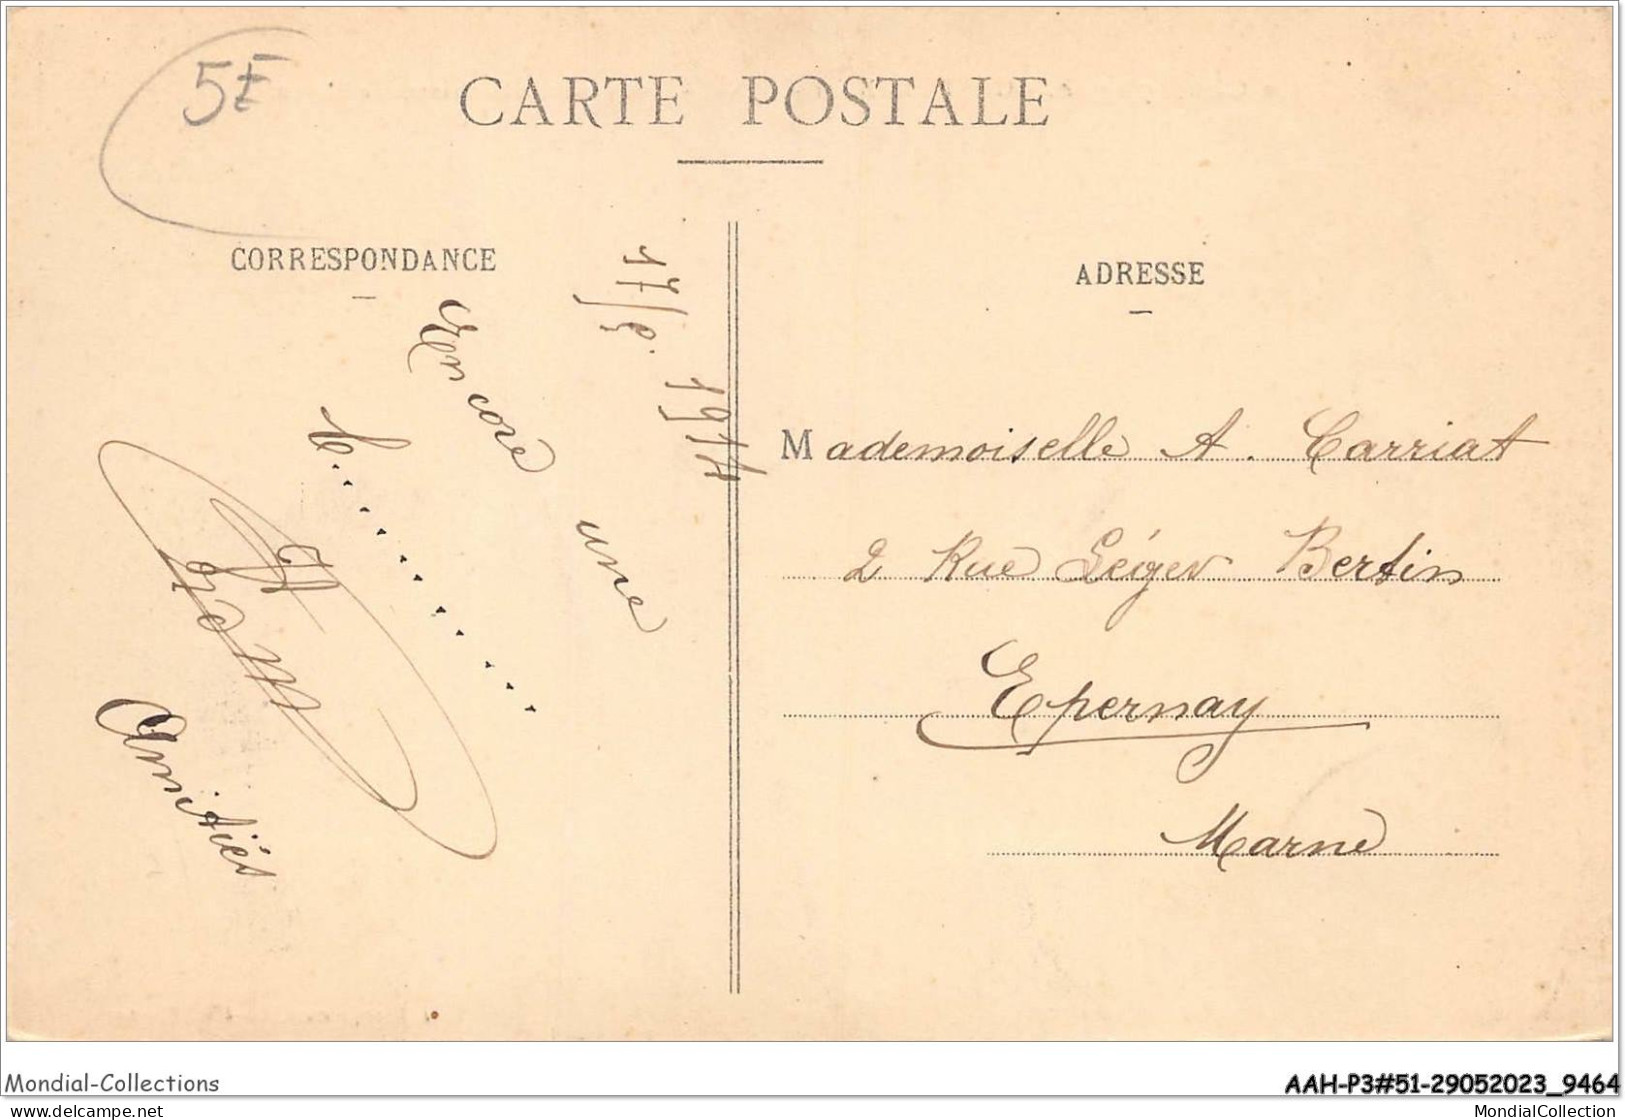 5F
CARTE POSTALE
CORRESPONDANCE
17/5. 1914
Encore une
Amitiés
ADRESSE
Mademoiselle A. Carriat
2 Rue Léger Bertin
Epernay
Marne
Mondial-Collections
AAH-P3#51-29052023_9464
www.delcampe.net
MondialCollection